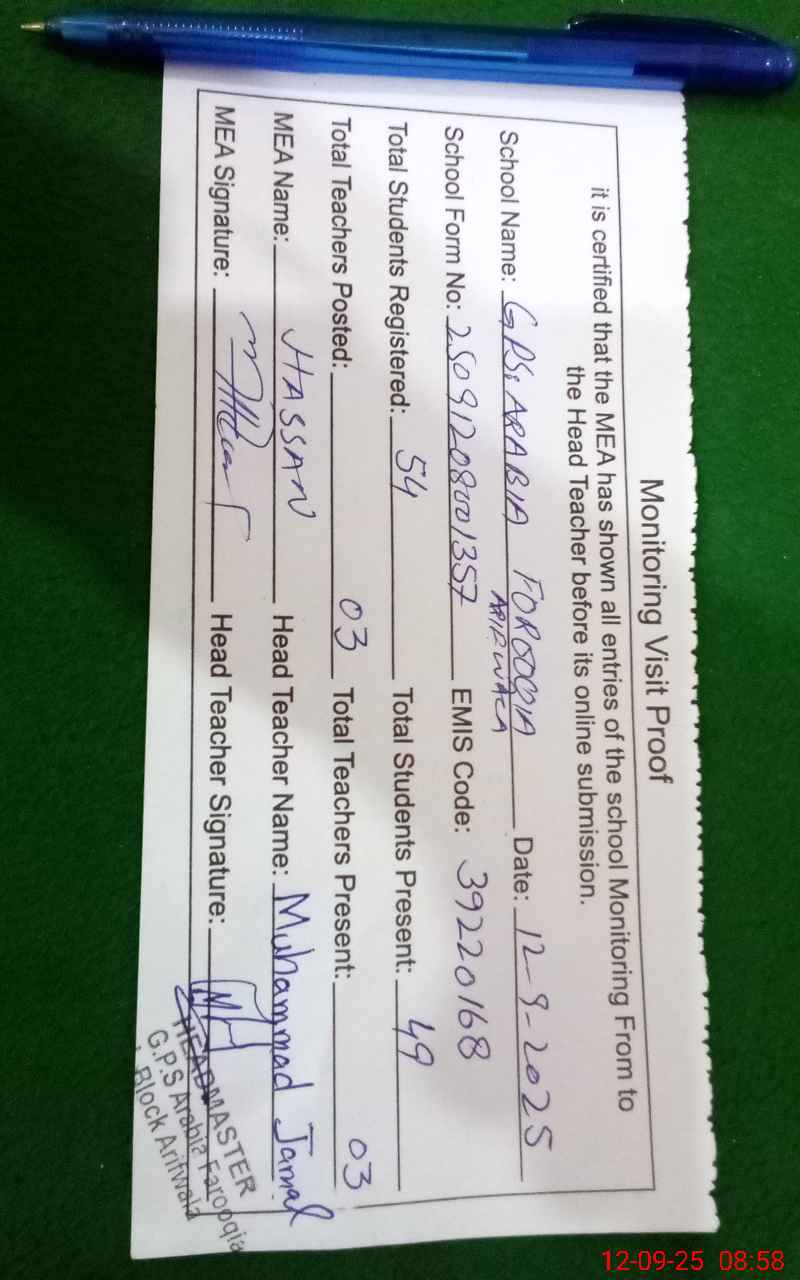 Monitoring Visit Proof
it is certified that the MEA has shown all entries of the school Monitoring From to
the Head Teacher before its online submission.
School Name: GPS, ARABIA FOROOQIA ARIFWALA Date: 12-9-2025
School Form No: 25091208001357 EMIS Code: 39220168
Total Students Registered: 54 Total Students Present: 49
Total Teachers Posted: 03 Total Teachers Present: 03
MEA Name: HASSAN Head Teacher Name: Muhammad Jamal
MEA Signature: Head Teacher Signature:
HEADMASTER
G.P.S Arabia Farooqia
Block Arifwala
12-09-25 08:58